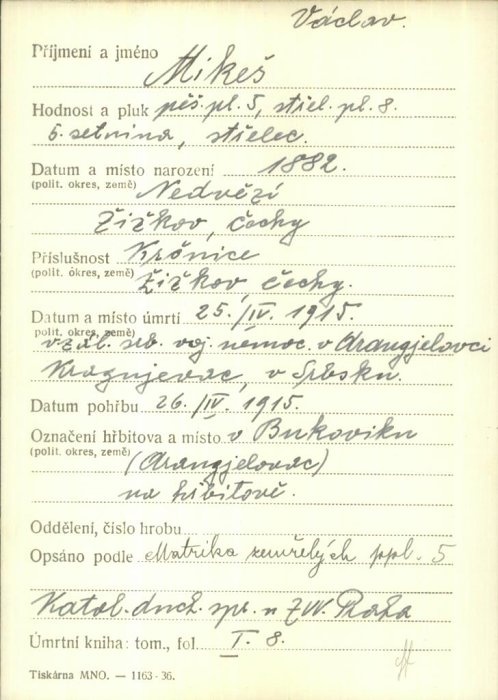 Václav.
Příjmení a jméno Mikeš
Hodnost a pluk pěš. pl. 5, střel. pl. 8.
6. setnina, střelec.
Datum a místo narození 1882.
(polit. okres, země) Nedvězí
Žižkov, Čechy
Příslušnost Krčnice
(polit. okres, země) Žižkov, Čechy.
Datum a místo úmrtí 25./IV. 1915.
polit. okres, země)
v zál. srb. voj. nemoc. v Arangjelovci
Kragujevac, v Srbsku.
Datum pohřbu 26./IV. 1915.
Označení hřbitova a místo v Bukoviku
(polit. okres, země) (Arangjelovac)
na hřbitově.
Oddělení, číslo hrobu
Opsáno podle Matrika zemřelých ppl. 5
Katol. duch. spr. n ZVV. Praha
Úmrtní kniha: tom., fol. I. 8.
Tiskárna MNO. — 1163-36.